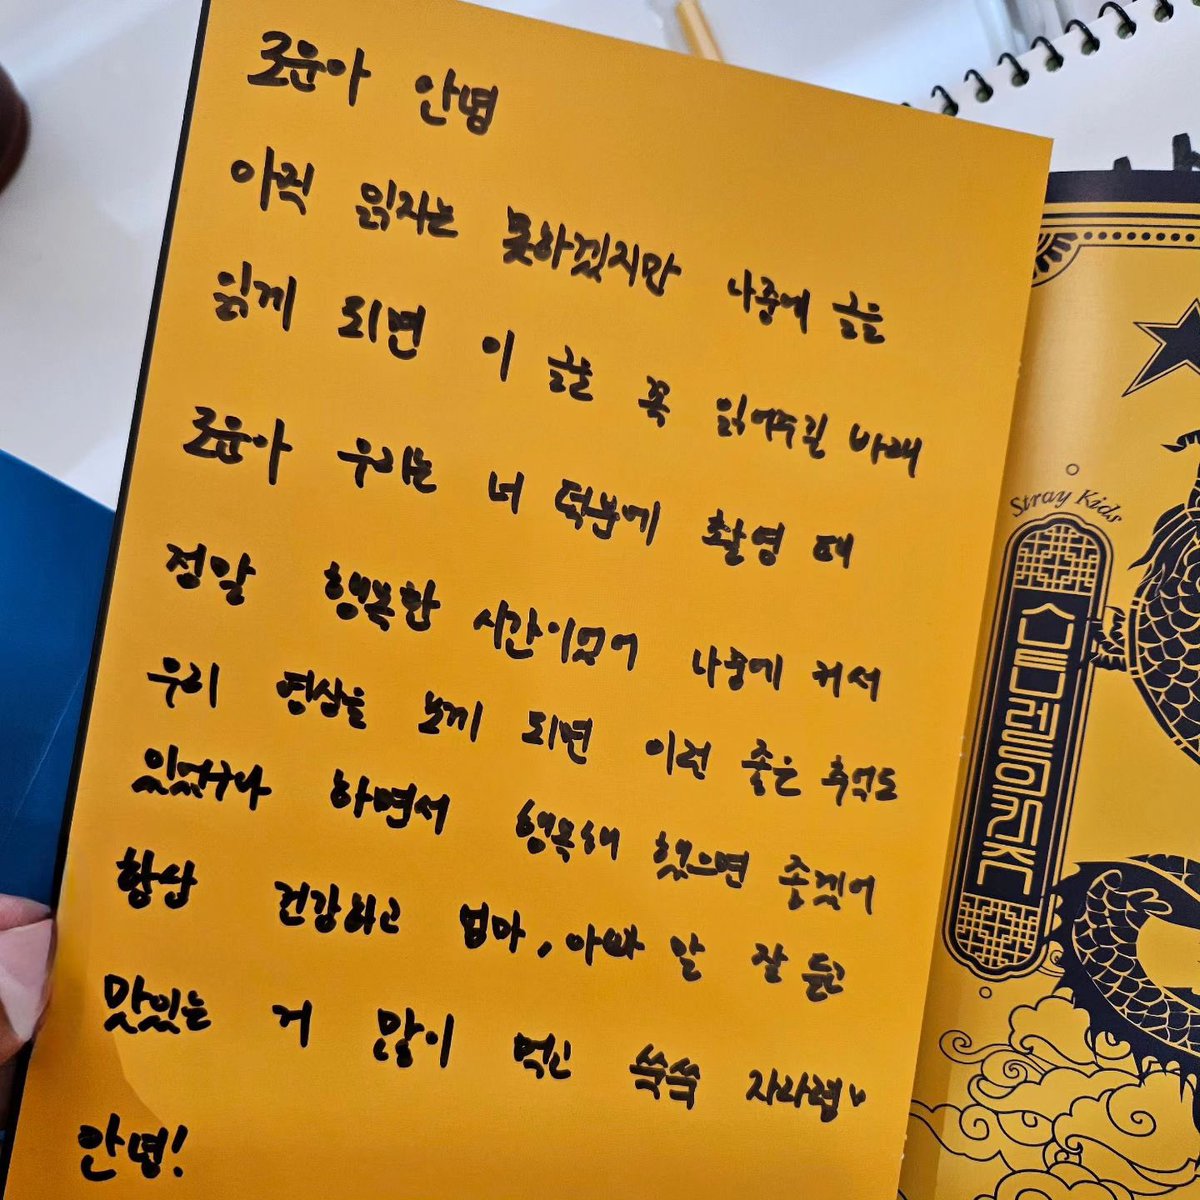 로운아 안녕
아직 읽지는 못하겠지만 나중에 글을
읽게 되면 이 글을 꼭 읽어주길 바래
로운아 우리는 너 덕분에 촬영 때
정말 행복한 시간이었어 나중에 커서
우리 영상을 보게 되면 이런 좋은 추억도
있었구나 하면서 행복해 했으면 좋겠어
항상 건강하고 엄마, 아빠 말 잘 듣고
맛있는 거 많이 먹고 쑥쑥 자라렴
안녕!
Stray Kids